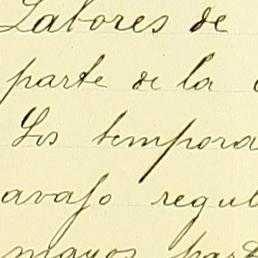 Labores de
parte de la
Los tempora
avajo regul
mayor part